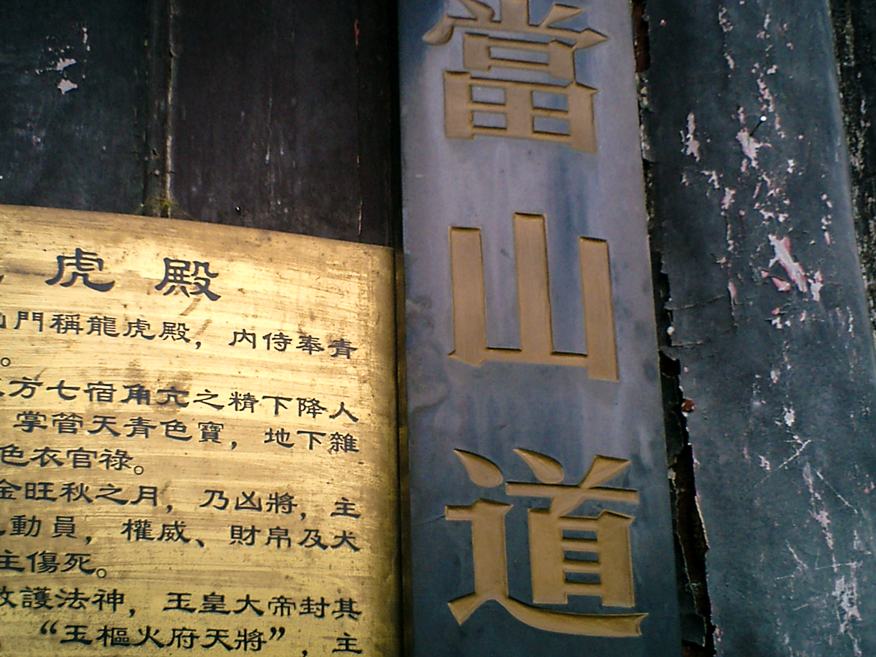 虎殿
山門稱龍虎殿，內侍奉青
。
方七宿角亢之精下降人
掌管天青色寶，地下雜
色衣官祿。
金旺秋之月，乃凶將，主
動員，權威、財帛及犬
主傷死。
護法神，玉皇大帝封其
“玉樞火府天將”，主
當山道